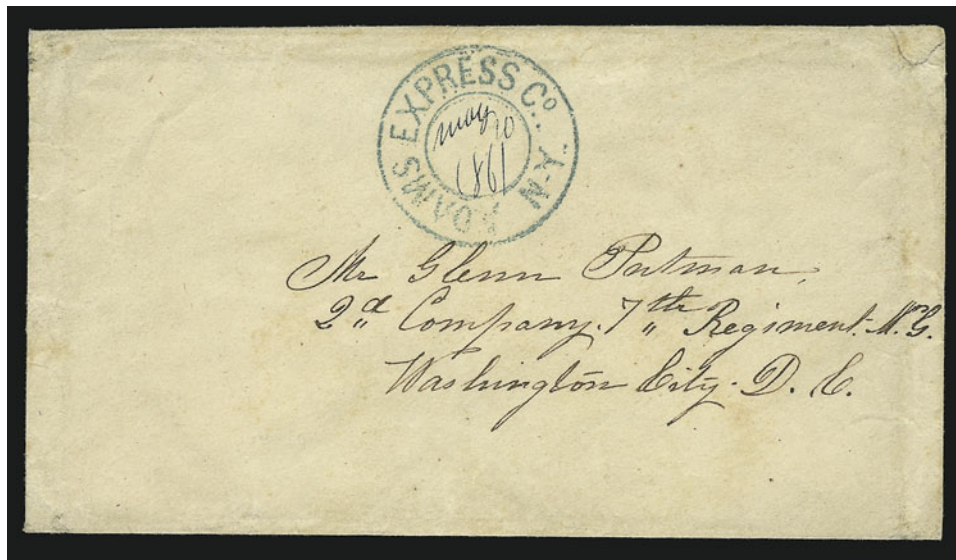 ADAMS EXPRESS Co. N-Y.
May 10
1861
Mr Glenn Putman,
2d Company. 7th Regiment. N.G.
Washington City. D. C.